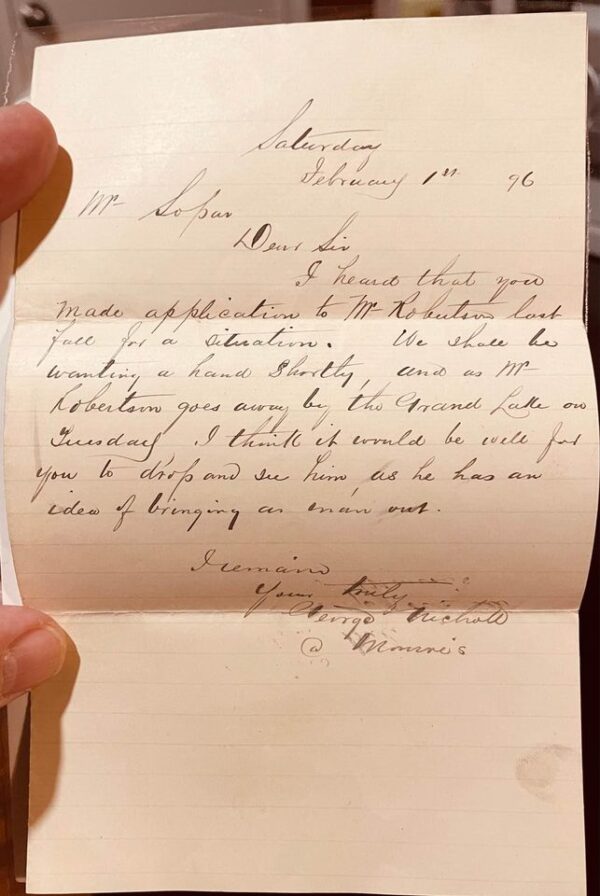 Saturday
February 1st 96
Mr Sopar
Dear Sir
I heard that you
made application to Mr Robertson last
fall for a situation. We shall be
wanting a hand shortly, and as Mr
Robertson goes away by the Grand Lake on
Tuesday, I think it would be well for
you to drop and see him, as he has an
idea of bringing an man out.
I remain
Yours truly
George Nicholl
@ Monroe's